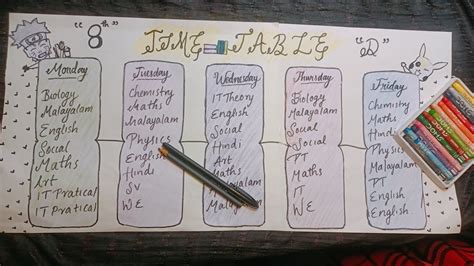 "8th" TIME TABLE "D"
Monday
Biology
Malayalam
English
Social
Maths
Art
IT Pratical
IT Pratical
Tuesday
Chemistry
Maths
Malayalam
Physics
English
Hindi
SV
WE
Wednesday
IT Theory
English
Social
Hindi
Art
Maths
Malayalam
Thursday
Biology
Malayalam
Social
Social
PT
Maths
IT
WE
Friday
Chemistry
Maths
Hindi
Physics
Malayalam
PT
English
English